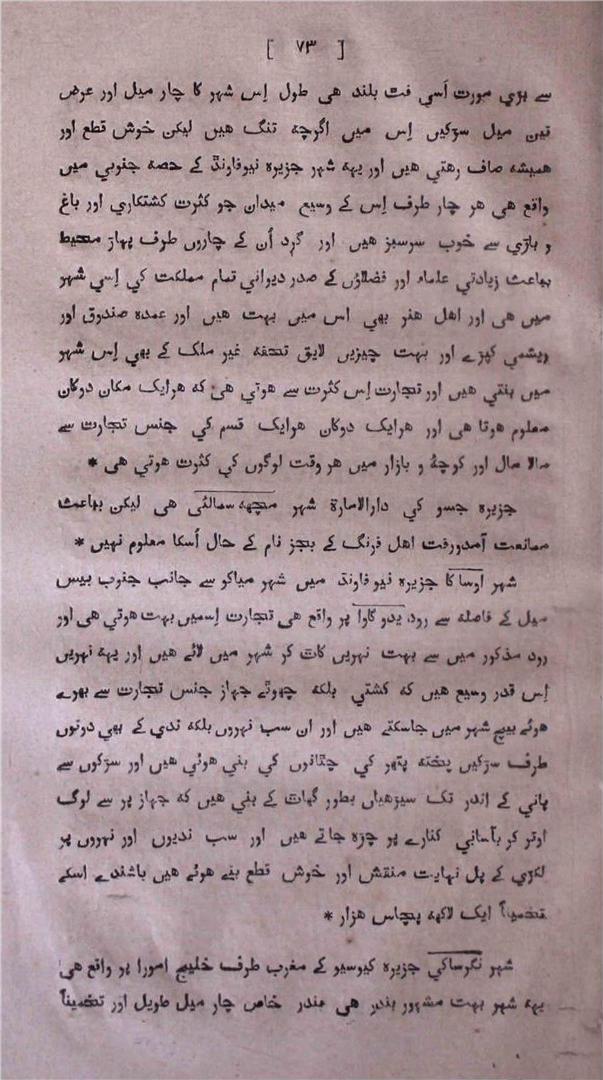 [ ۷۳ ]
سے بڑي مورت اَسي فٹ بلند هی طول اِس شہر کا چار میل اور عرض
تین میل سڑکیں اِس میں اگرچہ تنگ هیں لیکن خوش قطع اور
همیشہ صاف رهتي هیں اور یہہ شہر جزیرہ نیوفاونڈ کے حصہ جنوبي میں
واقع هی هر چار طرف اِس کے وسیع میدان جو کثرت کشتکاري اور باغ
و باڑي سے خوب سرسبز هیں اور گرد اُن کے چاروں طرف پہاڑ محیط
بباعث زیادتي علماء اور فضلاؤں کے صدر دیواني تمام مملکت کي اِسي شہر
میں هی اور اهل هنر بھي اس میں بہت هیں اور عمدہ صندوق اور
ریشمي کپڑے اور بہت چیزیں لایق تحفہ غیر ملک کے بھي اِس شہر
میں بنتي هیں اور تجارت اِس کثرت سے هوتي هی کہ هرایک مکان دوکان
معلوم هوتا هی اور هرایک دوکان هرایک قسم کي جنس تجارت سے
مالا مال اور کوچہٴ و بازار میں هر وقت لوگوں کي کثرت هوتي هی *
جزیرہ جسو کي دارالامارة شہر مچھہ سمالئي هی لیکن بباعث
ممانعت آمدورفت اهل فرنگ کے بجز نام کے حال اُسکا معلوم نہیں *
شہر اوساکا جزیرہ نیوفاونڈ میں شہر میاکو سے جانب جنوب بیس
میل کے فاصلہ سے رود یدوگاوا پر واقع هی تجارت اِسمیں بہت هوتي هی اور
رود مذکور میں سے بہت نہریں کاٹ کر شہر میں لائے هیں اور یہہ نہریں
اِس قدر وسیع هیں کہ کشتي بلکہ چھوٹے جہاز جنس تجارت سے بھرے
هوئے بیچ شہر میں جاسکتے هیں اور ان سب نہروں بلکہ ندي کے بھي دونوں
طرف سڑکیں پختہ پتھر کي چٹانوں کي بني هوئي هیں اور سڑکوں سے
پاني کے اندر تک سیڑھیاں بطور گھاٹ کے بني هیں کہ جہاز پر سے لوگ
اوتر کر بآساني کنارے پر چڑہ جاتے هیں اور سب ندیوں اور نہروں پر
لکڑي کے پل نہایت منقش اور خوش قطع بنے هوئے هیں باشندے اسکے
تخمیناً ایک لاکھہ پچاس هزار *
شہر نگرساکي جزیرہ کیوسیو کے مغرب طرف خلیج امورا پر واقع هی
یہہ شہر بہت مشہور بندر هی بندر خاص چار میل طویل اور تخمیناً